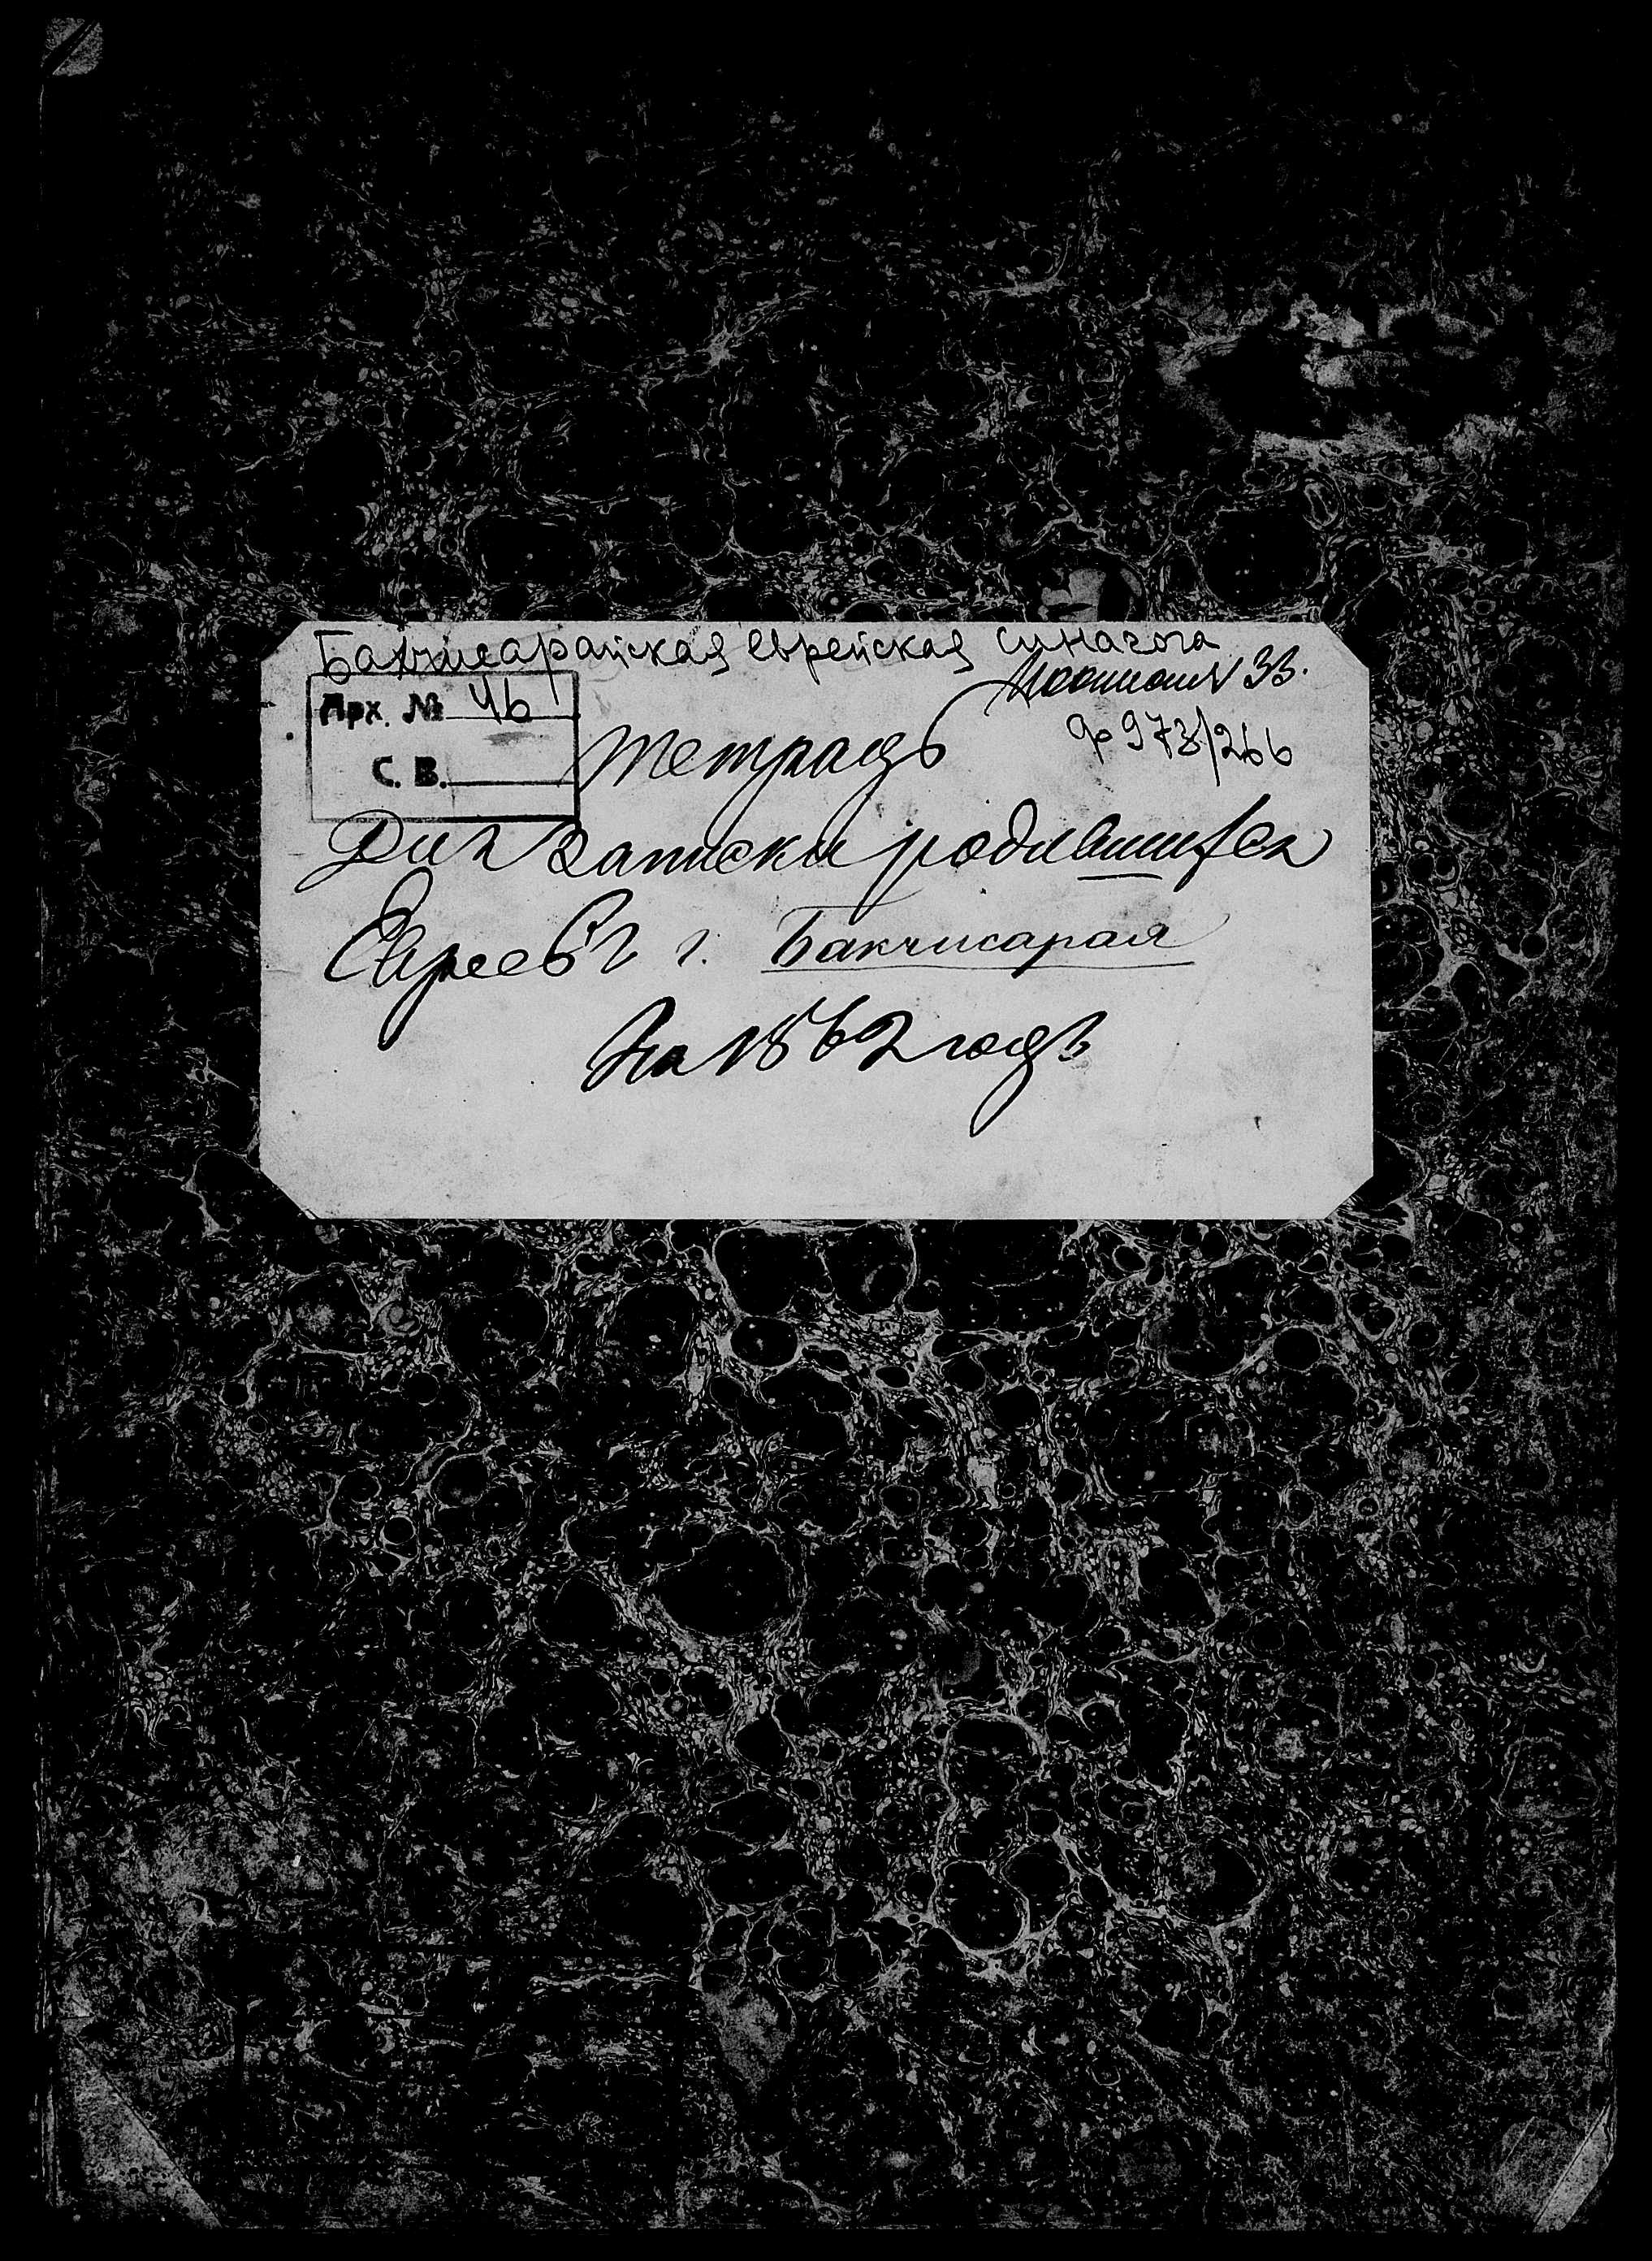 Бахчисарайская еврейская синагога
33.
Арх. № 46
ф 973/266
С. В.
Тетрадь
Для Записки родившихся
Евреевъ г. Бакчисарая
На 1862 годъ